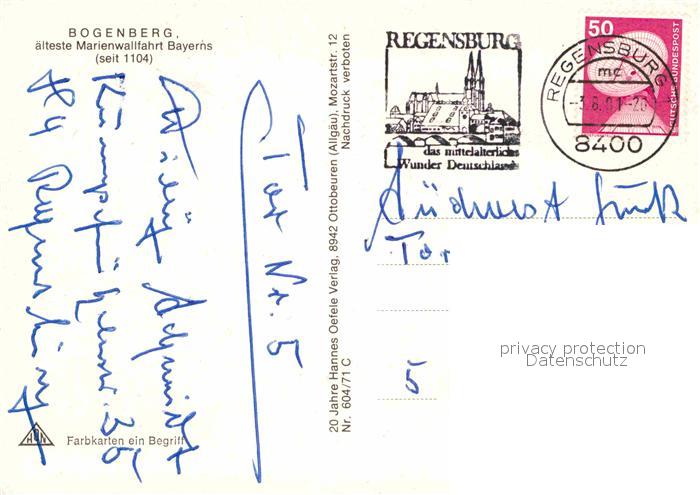 BOGENBERG,
älteste Marienwallfahrt Bayerns
(seit 1104)
Tor Nr. 5
Schmidt
35
84
Farbkarten ein Begriff
20 Jahre Hannes Oefele Verlag, 8942 Ottobeuren (Allgäu), Mozartstr. 12
Nr. 604/71 C
Nachdruck verboten
REGENSBURG
das mittelalterliche
Wunder Deutschlands
REGENSBURG
mc
8400
50
DEUTSCHE BUNDESPOST
Südwestfunk
Tor
5
privacy protection
Datenschutz